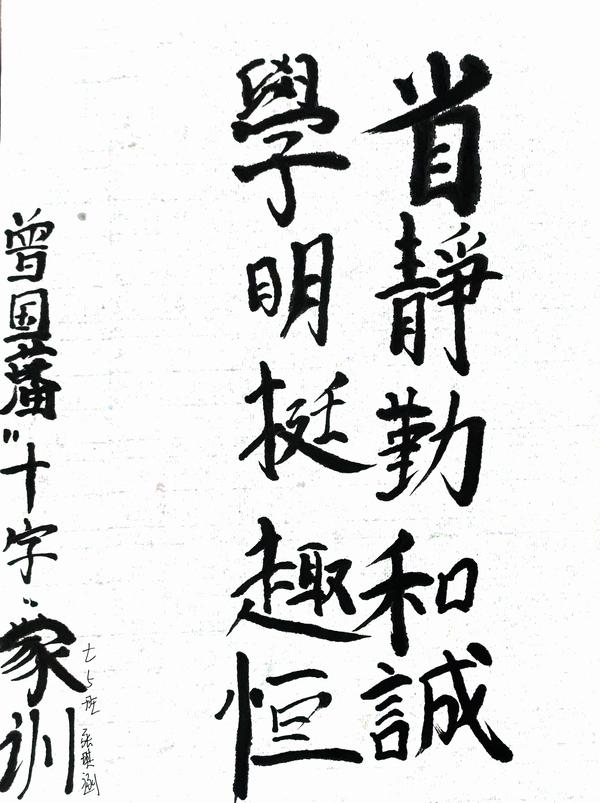 省靜勤和誠
學明挺趣恒
曾国藩"十字"家训
七5班 张琪涵